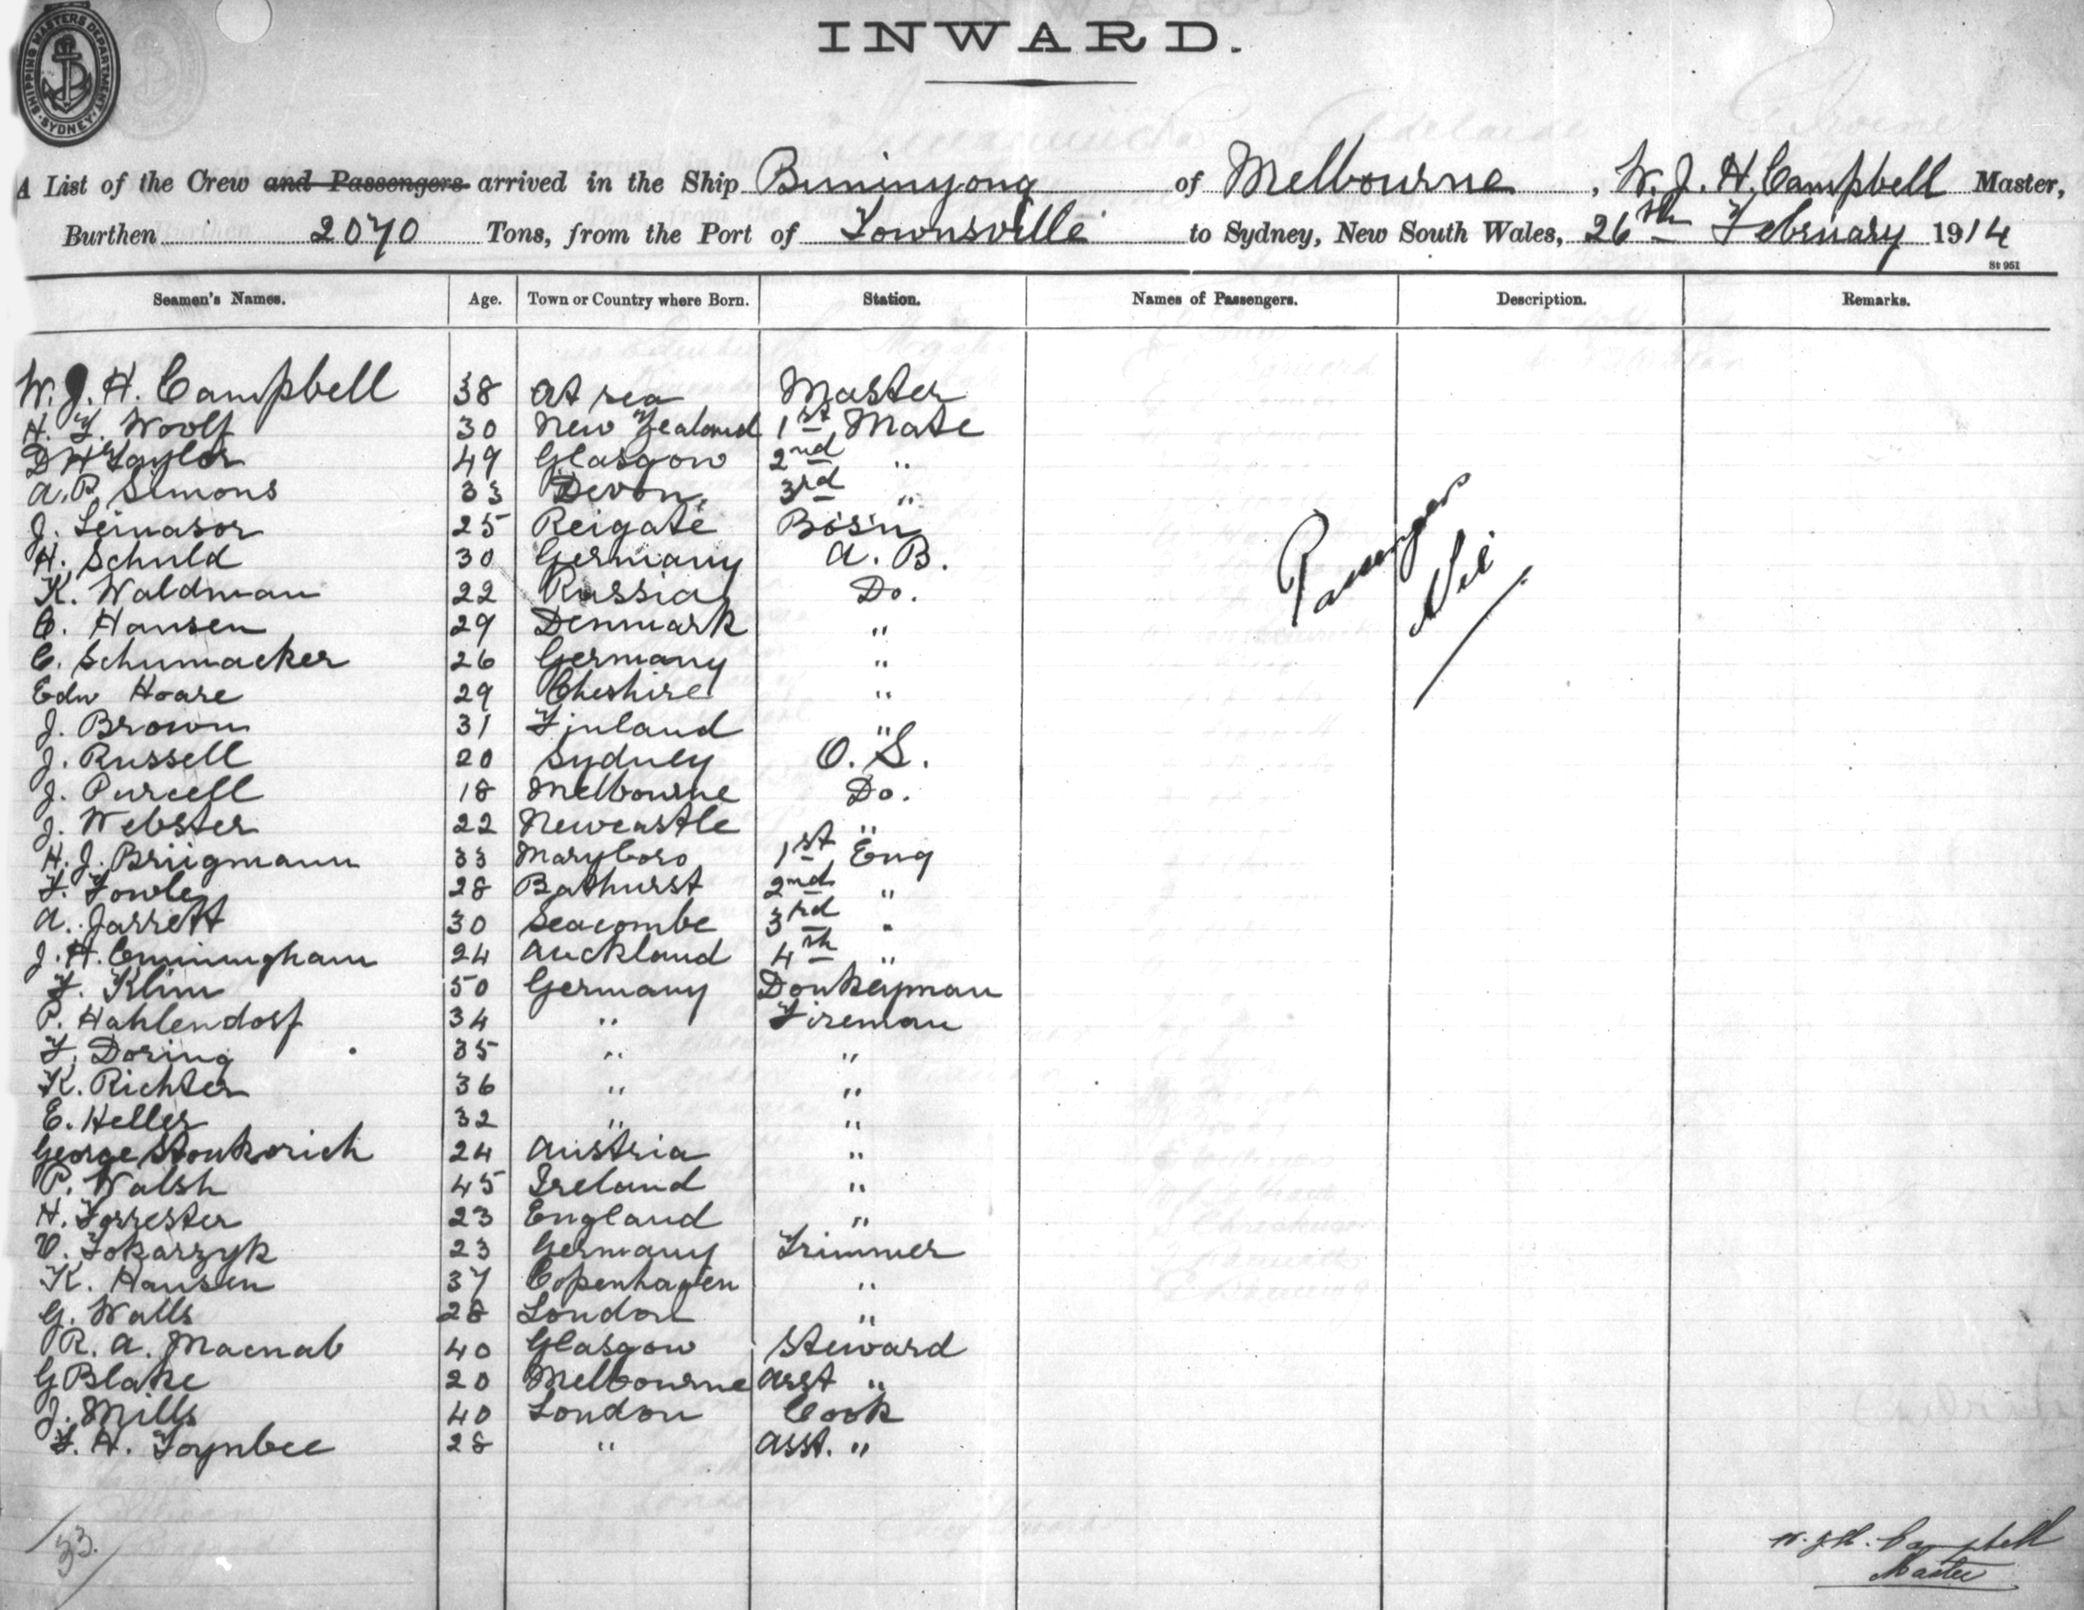 INWARD.
SHIPPING MASTERS DEPARTMENT. SYDNEY.
A List of the Crew and Passengers arrived in the Ship Buninyong of Melbourne, W. J. H. Campbell Master,
Burthen 2070 Tons, from the Port of Townsville to Sydney, New South Wales, 26th February 1914
St 951
Seamen's Names. Age. Town or Country where Born. Station. Names of Passengers. Description. Remarks.
W. J. H. Campbell 38 At sea Master
H. F. Woolf 30 New Zealand 1st Mate
D H Taylor 49 Glasgow 2nd "
A. P. Simons 33 Devon. 3rd "
J. Leinasor 25 Reigate Bos'n
H. Schuld 30 Germany A. B.
K. Waldman 22 Russia Do.
C. Hansen 29 Denmark "
C. Schumacker 26 Germany "
Edw Hoare 29 Cheshire "
J. Brown 31 Finland "
J. Russell 20 Sydney O. S.
J. Purcell 18 Melbourne Do.
J. Webster 22 Newcastle "
H. J. Brügmann 33 Maryboro 1st Eng
F. Fowley 28 Bathurst 2nd "
A. Jarrett 30 Seacombe 3rd "
J. H. Cunningham 24 Auckland 4th "
F. Klim 50 Germany Donkeyman
P. Hahlendorf 34 " Fireman
F. Doring 35 " "
K. Richter 36 " "
E. Heller 32 " "
George 24 Austria "
P. Walsh 45 Ireland "
H. Forrester 23 England "
V. Tokarzyk 23 Germany Trimmer
K. Hansen 37 Copenhagen "
G. Walls 28 London "
R. A. Macnab 40 Glasgow Steward
G Blake 20 Melbourne Asst "
J. Mills 40 London Cook
F. H. Toynbee 28 " Asst. "
Passengers
Nil
/33/
W. J. H. Campbell
Master